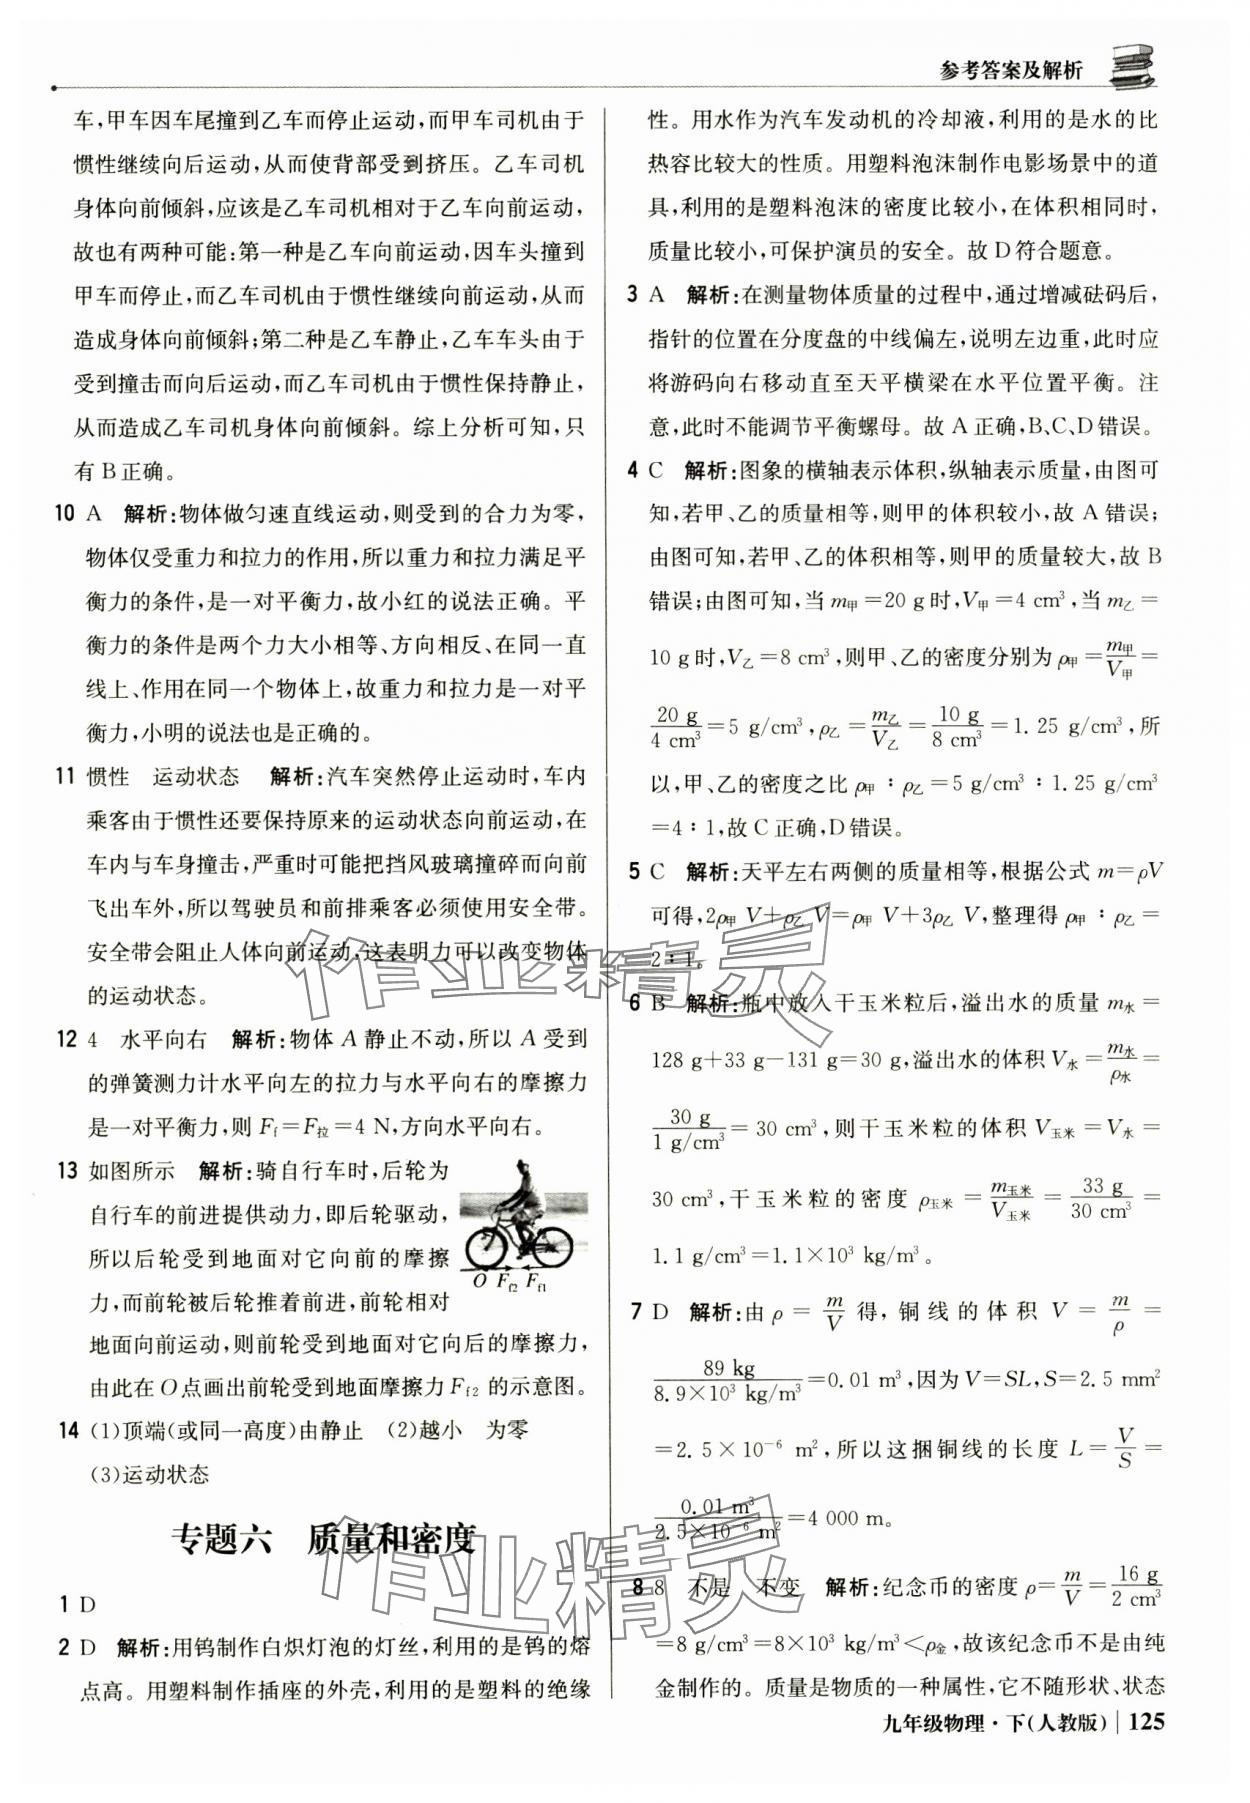 参考答案及解析
车,甲车因车尾撞到乙车而停止运动,而甲车司机由于
惯性继续向后运动,从而使背部受到挤压。乙车司机
身体向前倾斜,应该是乙车司机相对于乙车向前运动,
故也有两种可能:第一种是乙车向前运动,因车头撞到
甲车而停止,而乙车司机由于惯性继续向前运动,从而
造成身体向前倾斜;第二种是乙车静止,乙车车头由于
受到撞击而向后运动,而乙车司机由于惯性保持静止,
从而造成乙车司机身体向前倾斜。综上分析可知,只
有B正确。
10 A 解析:物体做匀速直线运动,则受到的合力为零,
物体仅受重力和拉力的作用,所以重力和拉力满足平
衡力的条件,是一对平衡力,故小红的说法正确。平
衡力的条件是两个力大小相等、方向相反、在同一直
线上、作用在同一个物体上,故重力和拉力是一对平
衡力,小明的说法也是正确的。
11 惯性 运动状态 解析:汽车突然停止运动时,车内
乘客由于惯性还要保持原来的运动状态向前运动,在
车内与车身撞击,严重时可能把挡风玻璃撞碎而向前
飞出车外,所以驾驶员和前排乘客必须使用安全带。
安全带会阻止人体向前运动,这表明力可以改变物体
的运动状态。
12 4 水平向右 解析:物体A静止不动,所以A受到
的弹簧测力计水平向左的拉力与水平向右的摩擦力
是一对平衡力,则 Ff=F拉=4 N,方向水平向右。
13 如图所示 解析:骑自行车时,后轮为
自行车的前进提供动力,即后轮驱动,
所以后轮受到地面对它向前的摩擦
力,而前轮被后轮推着前进,前轮相对
地面向前运动,则前轮受到地面对它向后的摩擦力,
由此在O点画出前轮受到地面摩擦力Ff2的示意图。
O Ff2 Ff1
14 (1)顶端(或同一高度)由静止 (2)越小 为零
(3)运动状态
专题六 质量和密度
1 D
2 D 解析:用钨制作白炽灯泡的灯丝,利用的是钨的熔
点高。用塑料制作插座的外壳,利用的是塑料的绝缘
性。用水作为汽车发动机的冷却液,利用的是水的比
热容比较大的性质。用塑料泡沫制作电影场景中的道
具,利用的是塑料泡沫的密度比较小,在体积相同时,
质量比较小,可保护演员的安全。故D符合题意。
3 A 解析:在测量物体质量的过程中,通过增减砝码后,
指针的位置在分度盘的中线偏左,说明左边重,此时应
将游码向右移动直至天平横梁在水平位置平衡。注
意,此时不能调节平衡螺母。故A正确,B、C、D错误。
4 C 解析:图象的横轴表示体积,纵轴表示质量,由图可
知,若甲、乙的质量相等,则甲的体积较小,故A错误;
由图可知,若甲、乙的体积相等,则甲的质量较大,故B
错误;由图可知,当m甲=20 g时,V甲=4 cm³,当m乙=
10 g时,V乙=8 cm³,则甲、乙的密度分别为ρ甲=m甲/V甲=
20 g/4 cm³=5 g/cm³,ρ乙=m乙/V乙=10 g/8 cm³=1.25 g/cm³,所
以,甲、乙的密度之比ρ甲∶ρ乙=5 g/cm³∶1.25 g/cm³
=4∶1,故C正确,D错误。
5 C 解析:天平左右两侧的质量相等,根据公式m=ρV
可得,2ρ甲V+ρ乙V=ρ甲V+3ρ乙V,整理得ρ甲∶ρ乙=
2∶1。
6 B 解析:瓶中放入干玉米粒后,溢出水的质量m水=
128 g+33 g-131 g=30 g,溢出水的体积V水=m水/ρ水=
30 g/1 g/cm³=30 cm³,则干玉米粒的体积V玉米=V水=
30 cm³,干玉米粒的密度ρ玉米=m玉米/V玉米=33 g/30 cm³=
1.1 g/cm³=1.1×10³ kg/m³。
7 D 解析:由ρ=m/V得,铜线的体积V=m/ρ=
89 kg/8.9×10³ kg/m³=0.01 m³,因为V=SL,S=2.5 mm²
=2.5×10⁻⁶ m²,所以这捆铜线的长度L=V/S=
0.01 m³/2.5×10⁻⁶ m²=4 000 m。
8 8 不是 不变 解析:纪念币的密度ρ=m/V=16 g/2 cm³
=8 g/cm³=8×10³ kg/m³<ρ金,故该纪念币不是由纯
金制作的。质量是物质的一种属性,它不随形状、状态
九年级物理·下(人教版) | 125
作业精灵
作业精灵